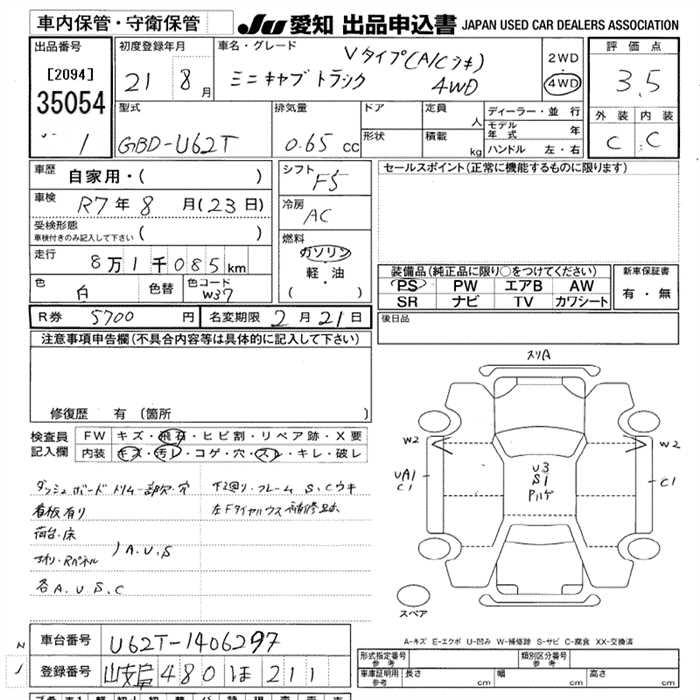 車内保管・守衛保管
JU 愛知 出品申込書 JAPAN USED CAR DEALERS ASSOCIATION
出品番号
[2094]
35054
1
初度登録年月
21 8月
車名・グレード
Vタイプ(A/Cツキ)
ミニキャブトラック 4WD
2WD
4WD
評価点
3.5
外装 内装
C C
型式
GBD-U62T
排気量
0.65 cc
ドア
形状
定員
人
積載
kg
ディーラー・並行
モデル年式 年
ハンドル 左・右
車歴 自家用・( )
車検 R7年8月(23日)
受検形態
車検付きのみ記入して下さい ( )
走行 8万1千085km
色 白 色替 色コード W37
シフト F5
冷房 AC
燃料
ガソリン
軽・油
( )
セールスポイント(正常に機能するものに限ります)
装備品(純正品に限り○をつけてください)
PS PW エアB AW
SR ナビ TV カワシート
新車保証書
有・無
R券 5700円 名変期限 2月21日
後日品
注意事項申告欄(不具合内容等は具体的に記入して下さい)
修復歴 有(箇所 )
検査員記入欄
FW キズ・飛石・ヒビ割・リペア跡・X要
内装 キズ・汚レ・コゲ・穴・スレ・キレ・破レ
ダッシュボード トリム一部穴・穴
看板有り
荷台・床
A.U.S
各A.U.S.C
下回り・フレーム S.Cウキ
スリA
W2
W2
UA1
C1
C1
U3
S1
Pハゲ
スペア
A-キズ E-エクボ U-凹み W-補修跡 S-サビ C-腐食 XX-交換済
車台番号 U62T-1406297
登録番号 岐阜480ほ211
形式指定番号 参考
類別区分番号 参考
車庫証明用 参考
長さ cm 幅 cm 高さ cm